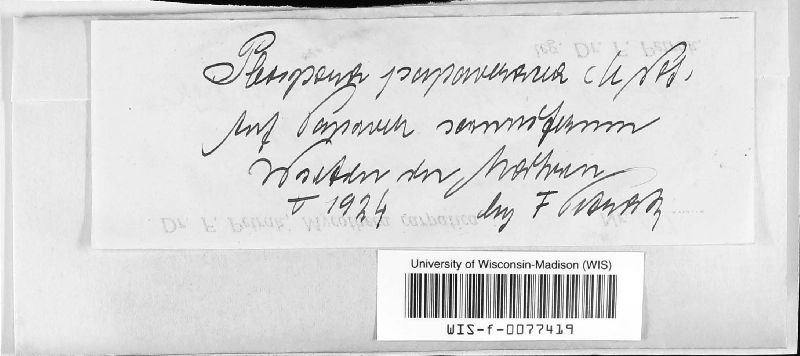 leg. Dr. F. Petrak.
Pleospora papaveracea
Auf Papaver somniferum
in Mähren
V 1924 leg F Petrak
Dr. F. Petrak, Mycotheca carpatica Nr.
University of Wisconsin-Madison (WIS)
WIS-f-0077419